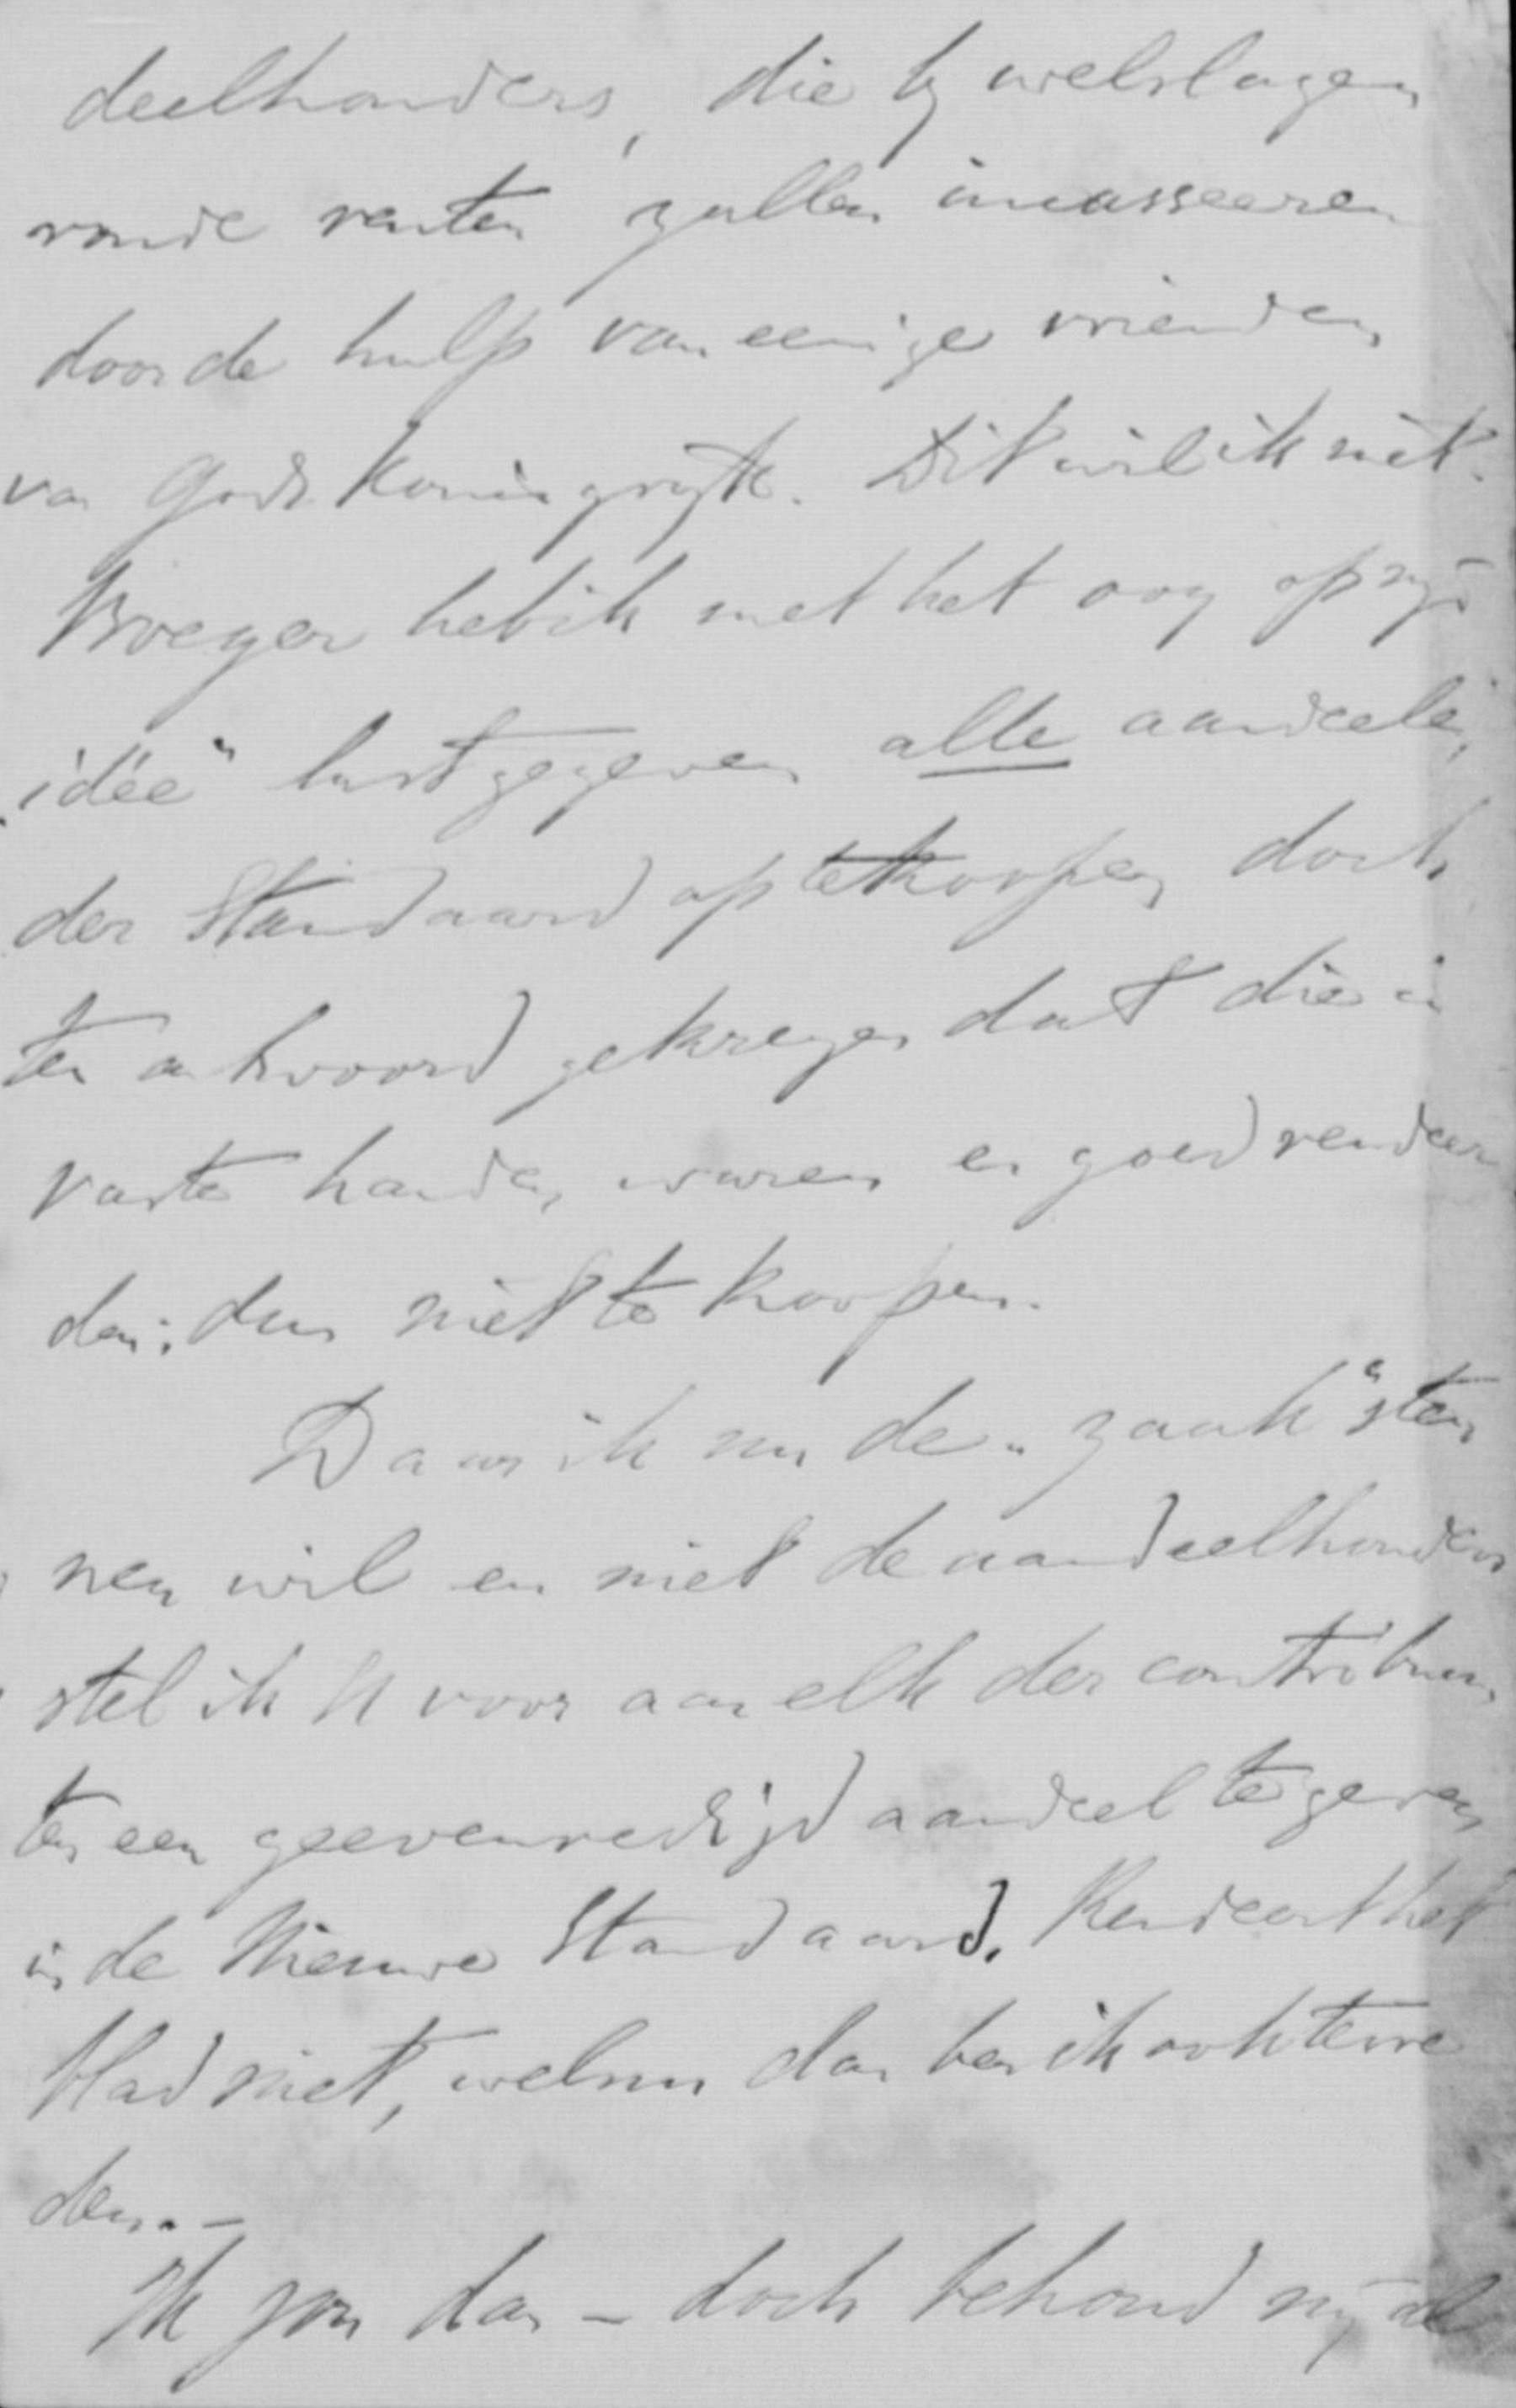 deelhouders, die bij welslagen
ronde renten zullen incasseeren
door de hulp van eenige vrienden
van Gods Koningrijk. Dit wil ik niet.
Vroeger heb ik met het oog op mijn
„idée" last gegeven alle aandeelen,
der Standaard op te koopen doch
ten antwoord gekregen dat die in
vaste handen waren en goed rendeer
den; dus niet te koopen.
Daar ik nu de „zaak" steu
nen wil en niet de aandeelhouders
stel ik U voor aan elk der contribuen
ten een geevenredigd aandeel te geven
in de Nieuwe Standaard. Rendeert het
blad niet, welnu dan ben ik ook tevre
den. –
Ik zou dan – doch behoud mij al